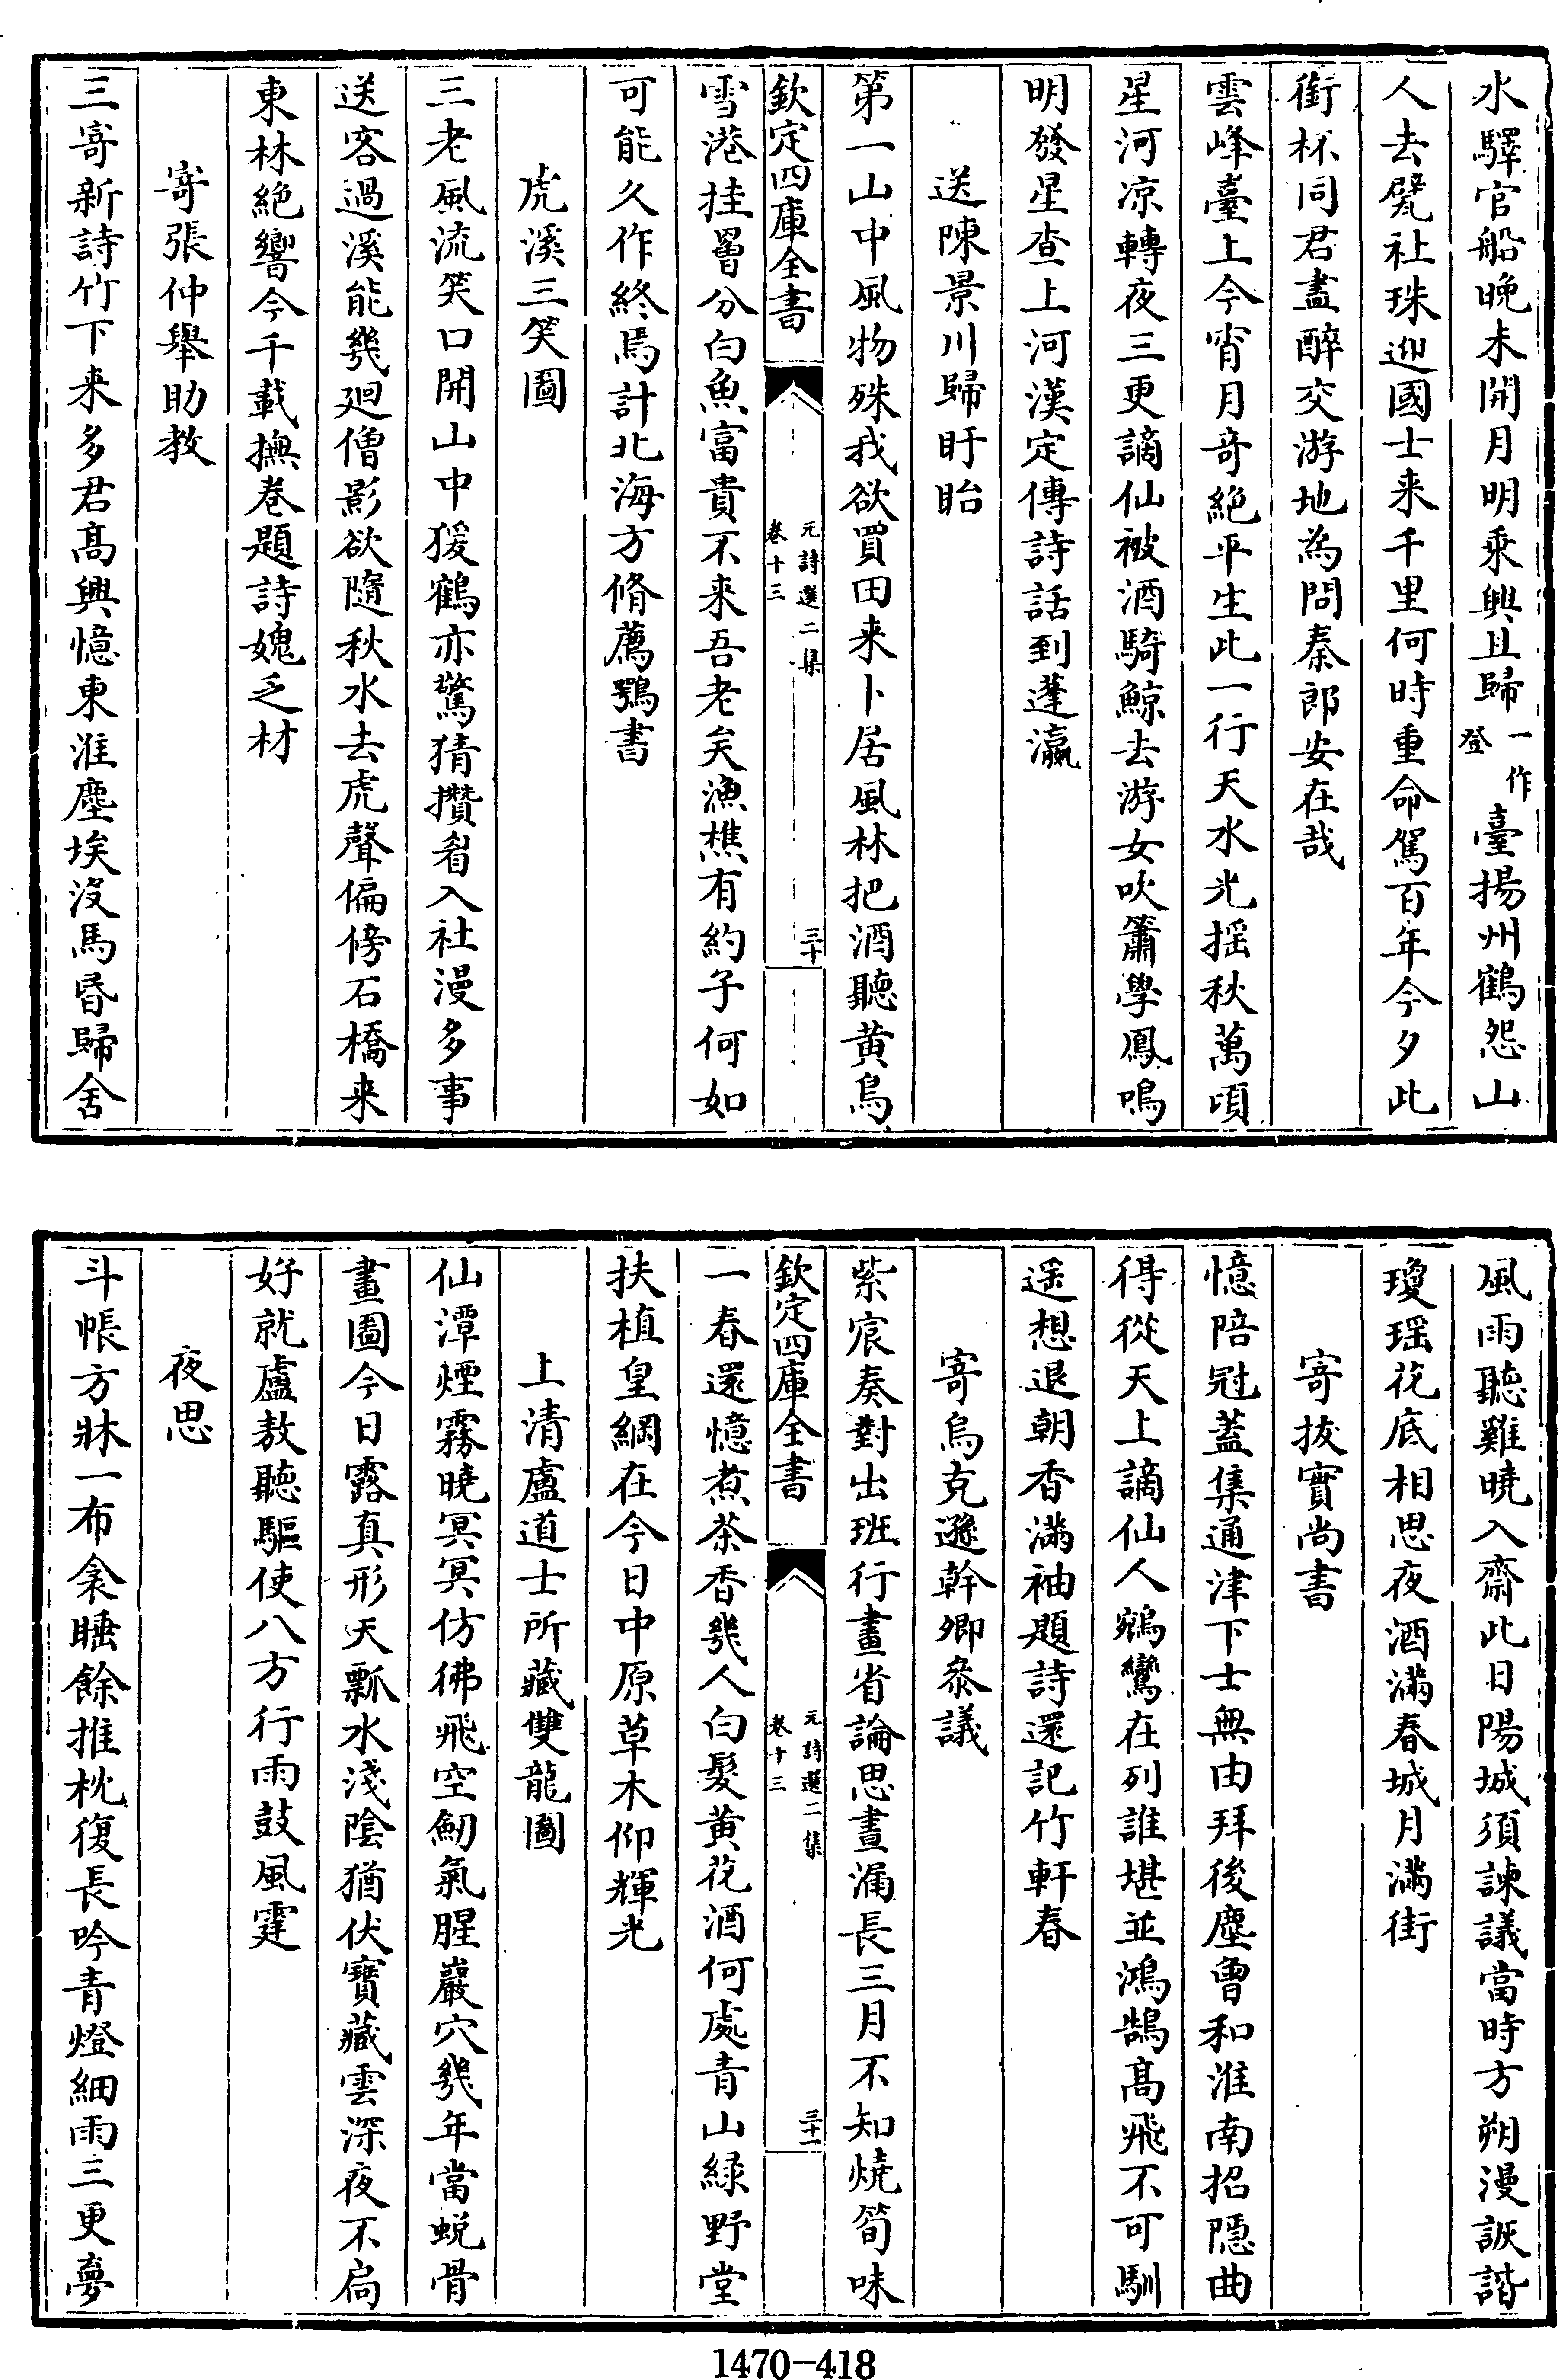 水驛官船晚未開月明乘興且歸一作登臺揚州鶴怨山
人去甓社珠迎國士来千里何時重命駕百年今夕此
銜杯同君盡醉交游地為問秦郎安在哉
雲峰臺上今宵月奇絶平生此一行天水光揺秋萬頃
星河凉轉夜三更謫仙被酒騎鯨去游女吹簫學鳳鳴
明發星查上河漢定傳詩話到蓬瀛
送陳景川歸盱眙
第一山中風物殊我欲買田来卜居風林把酒聽黄鳥
欽定四庫全書
元詩選二集
卷十三
三十
雪港挂罾分白魚富貴不来吾老矣漁樵有約子何如
可能久作終焉計北海方脩薦鶚書
虎溪三笑圖
三老風流笑口開山中猨鶴亦驚猜攢眉入社漫多事
送客過溪能幾廻僧影欲隨秋水去虎聲偏傍石橋来
東林絶響今千載撫卷題詩媿乏材
寄張仲舉助教
三寄新詩竹下来多君髙興憶東淮塵埃沒馬昏歸舍
風雨聽雞曉入齋此日陽城須諫議當時方朔漫詼諧
瓊瑶花底相思夜酒滿春城月滿街
寄拔實尚書
憶陪冠蓋集通津下士無由拜後塵曾和淮南招隠曲
得從天上謫仙人鵷鸞在列誰堪並鴻鵠髙飛不可馴
遥想退朝香滿袖題詩還記竹軒春
寄烏克遜幹卿叅議
紫宸奏對出班行畫省論思晝漏長三月不知燒筍味
欽定四庫全書
元詩選二集
卷十三
三十一
一春還憶煮茶香幾人白髮黄花酒何處青山緑野堂
扶植皇綱在今日中原草木仰輝光
上清盧道士所藏雙龍圖
仙潭煙霧曉冥冥仿彿飛空劒氣腥巖穴幾年當蜕骨
畫圖今日露真形天瓢水淺陰猶伏寶藏雲深夜不扃
好就盧敖聽驅使八方行雨鼓風霆
夜思
斗帳方牀一布衾睡餘推枕復長吟青燈細雨三更夢
1470-418